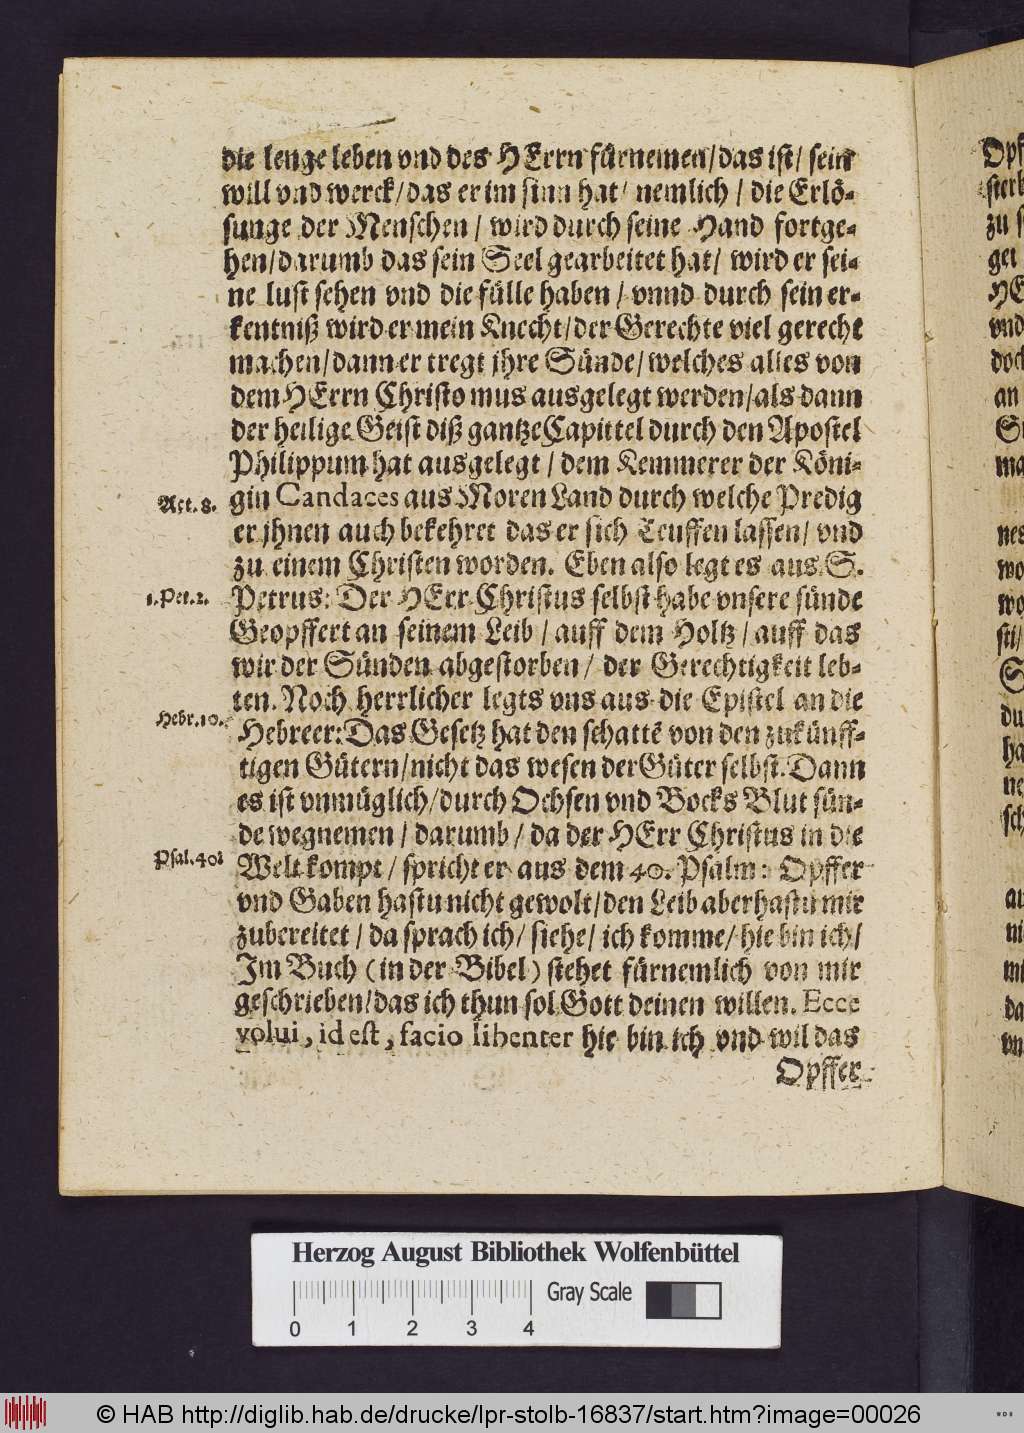 die lenge leben vnd des HErrn fürnemen/das ist/ sein
will vnd werck/das er im sinn hat/ nemlich / die Erlö-
sunge der Menschen / wird durch seine Hand fortge-
hen/darumb das sein Seel gearbeitet hat/ wird er sei-
ne lust sehen vnd die fülle haben / vnnd durch sein er-
kentniß wird er mein Knecht/der Gerechte viel gerecht
machen/dann er tregt jhre Sünde/welches alles von
dem HErrn Christo mus ausgelegt werden/als dann
der heilige Geist diß gantze Capittel durch den Apostel
Philippum hat ausgelegt / dem Kemmerer der Köni-
Act. 8.
gin Candaces aus Moren Land durch welche Predig
er jhnen auch bekehret das er sich Teuffen lassen/ vnd
zu einem Christen worden. Eben also legt es aus S.
1. Pet. 2.
Petrus: Der HErr Christus selbst habe vnsere sünde
Geopffert an seinem Leib / auff dem Holtz / auff das
wir der Sünden abgestorben/ der Gerechtigkeit leb-
ten. Noch herrlicher legts vns aus die Epistel an die
Hebr. 10.
Hebreer: Das Gesetz hat den schattē von den zukünff-
tigen Gütern/nicht das wesen der Güter selbst. Dann
es ist vnmüglich/durch Ochsen vnd Bocks Blut sün-
de wegnemen / darumb / da der HErr Christus in die
Psal. 40.
Welt kompt / spricht er aus dem 40. Psalm: Opffer
vnd Gaben hastu nicht gewolt/den Leib aber hastu mir
zubereitet / da sprach ich/ siehe/ ich komme/ hie bin ich/
Im Buch (in der Bibel) stehet fürnemlich von mir
geschrieben/das ich thun sol Gott deinen willen. Ecce
volui, id est, facio libenter hie bin ich vnd wil das
Opffer
Herzog August Bibliothek Wolfenbüttel
Gray Scale
0 1 2 3 4
© HAB http://diglib.hab.de/drucke/lpr-stolb-16837/start.htm?image=00026